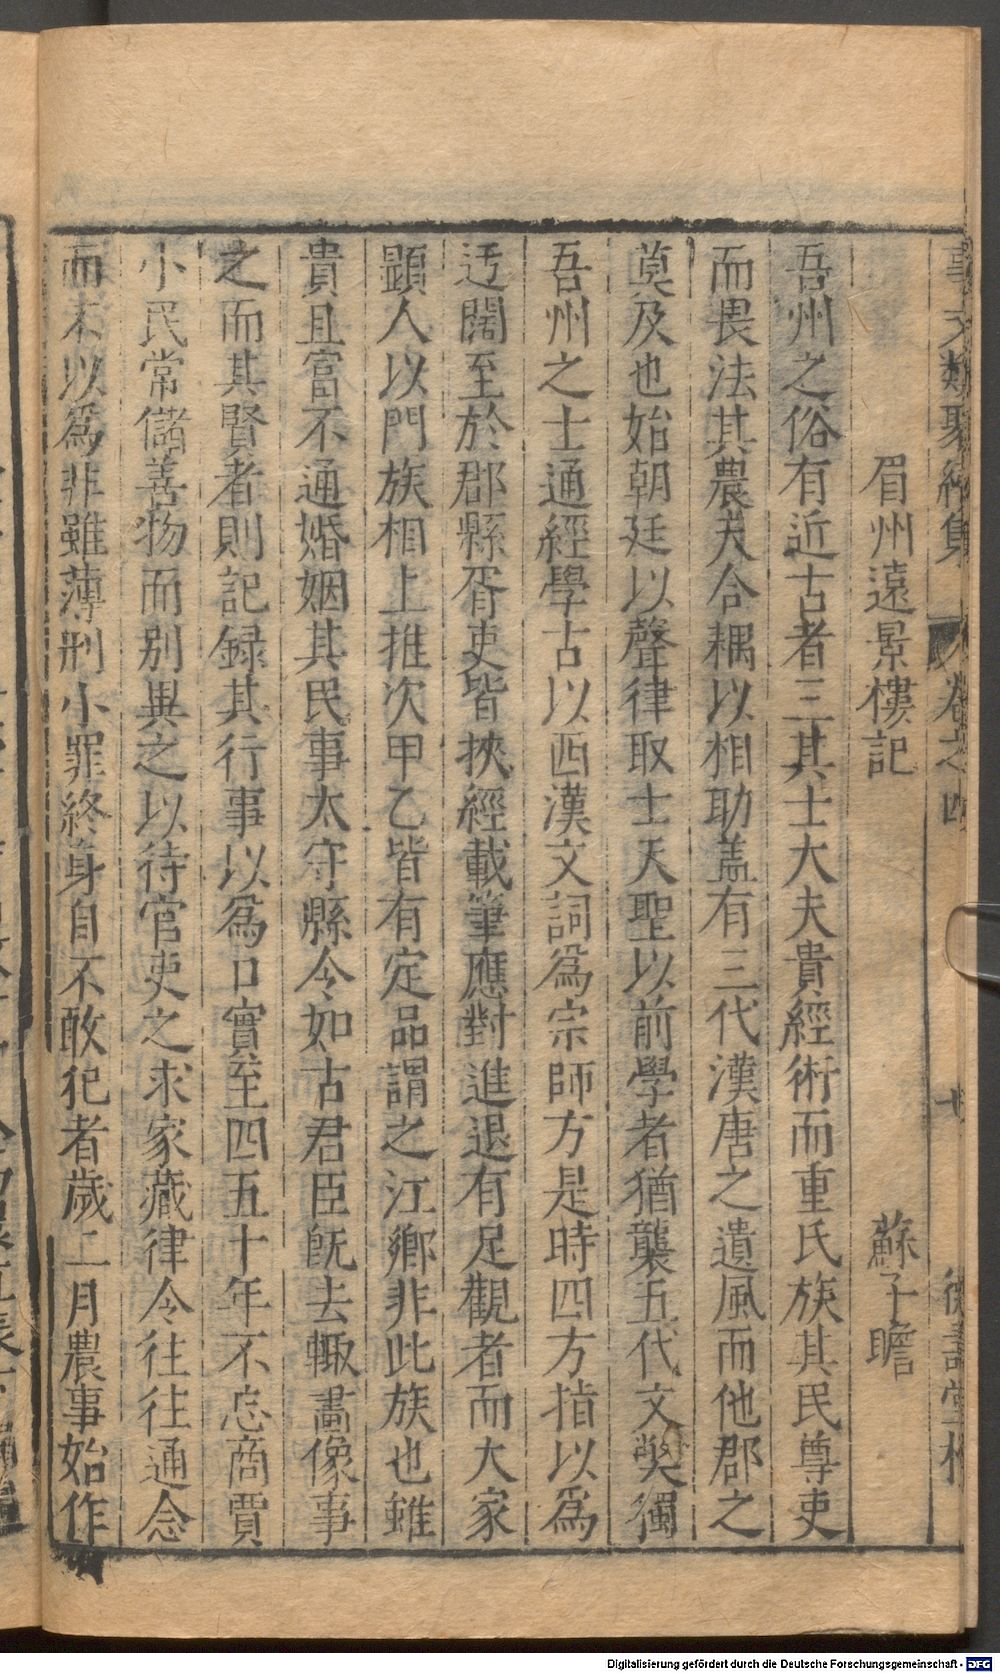 事文類聚續集 卷之四 德壽堂梓
眉州遠景樓記 蘇子瞻
吾州之俗有近古者三其士大夫貴經術而重氏族其民尊吏
而畏法其農夫合耦以相助盖有三代漢唐之遺風而他郡之
莫及也始朝廷以聲律取士天聖以前學者猶襲五代文獘獨
吾州之士通經學古以西漢文詞爲宗師方是時四方指以爲
迃闊至於郡縣胥吏皆挾經載筆應對進退有足觀者而大家
顕人以門族相上推次甲乙皆有定品謂之江鄉非此族也雖
貴且富不通婚姻其民事太守縣令如古君臣旣去輙畵像事
之而其賢者則記録其行事以爲口實至四五十年不忘商賈
小民常儲善物而别異之以待官吏之求家藏律令往往通念
而不以爲非雖薄刑小罪終身自不敢犯者歲二月農事始作
Digitalisierung gefördert durch die Deutsche Forschungsgemeinschaft - DFG